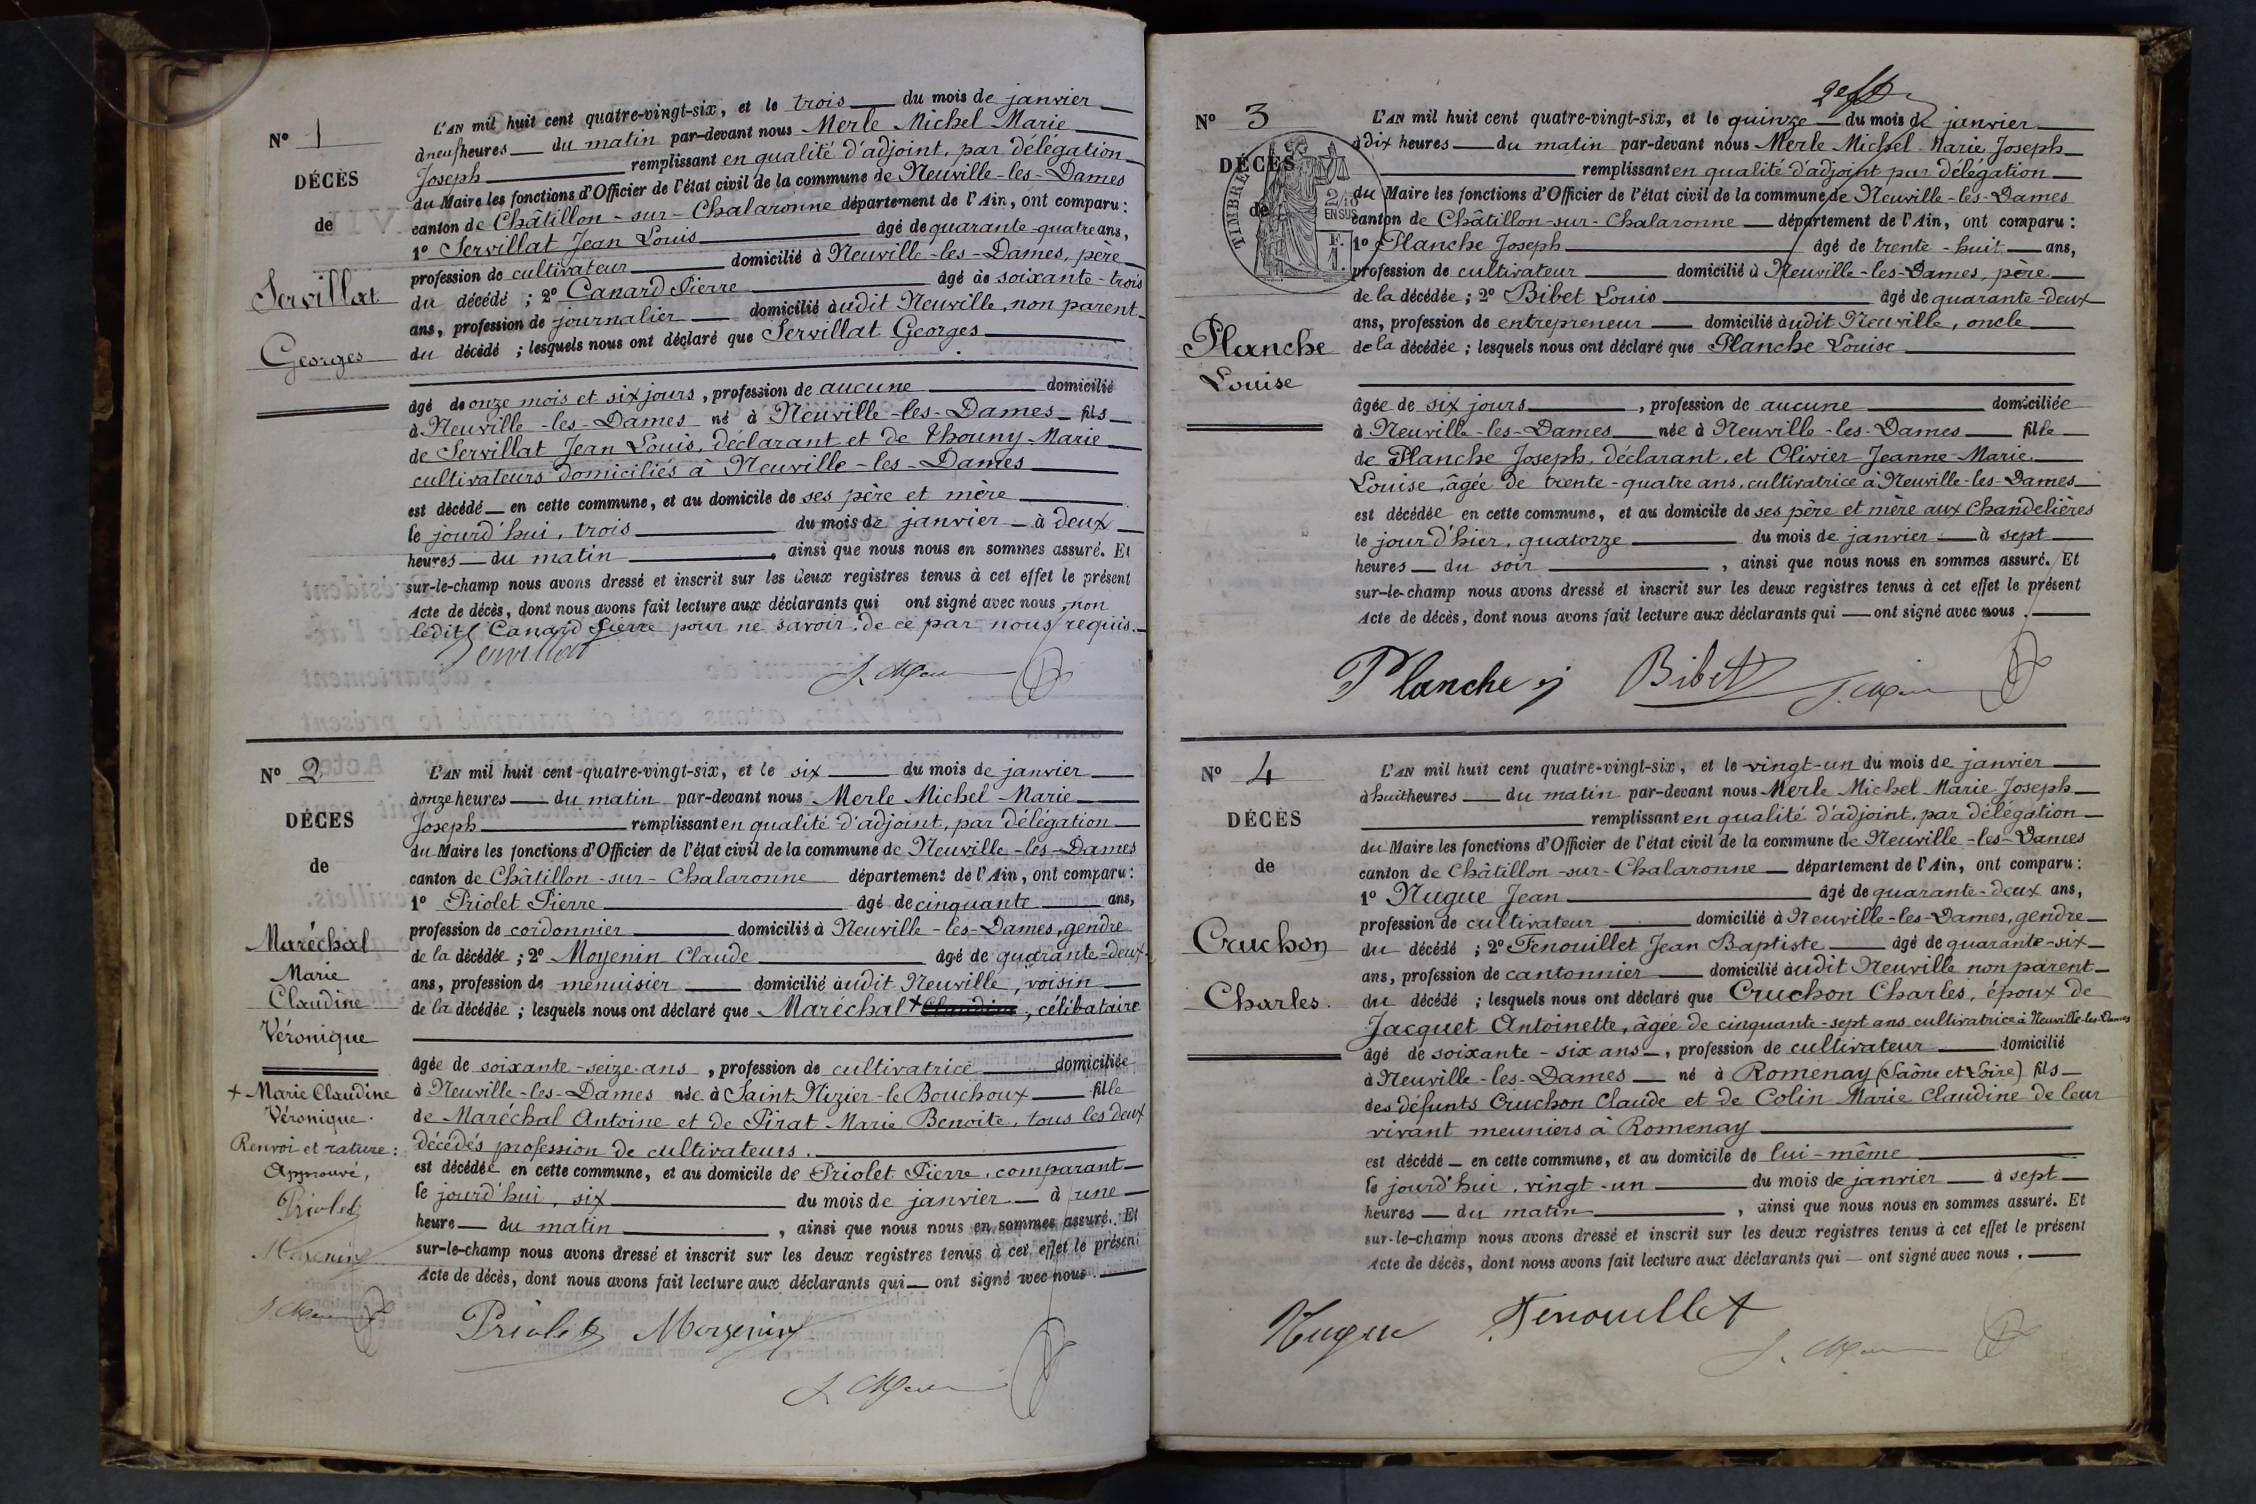 N° 1
DÉCÈS
de
Servillat
Georges
L'AN mil huit cent quatre-vingt-six, et le trois du mois de janvier
à neuf heures du matin par-devant nous Merle Michel Marie
Joseph remplissant en qualité d'adjoint, par délégation
du Maire les fonctions d'Officier de l'état civil de la commune de Neuville-les-Dames
canton de Châtillon-sur-Chalaronne département de l'Ain, ont comparu :
1° Servillat Jean Louis âgé de quarante-quatre ans,
profession de cultivateur domicilié à Neuville-les-Dames, père
du décédé ; 2° Canard Pierre âgé de soixante-trois
ans, profession de journalier domicilié audit Neuville, non parent
du décédé ; lesquels nous ont déclaré que Servillat Georges
âgé de onze mois et six jours, profession de aucune domicilié
à Neuville-les-Dames né à Neuville-les-Dames fils
de Servillat Jean Louis, déclarant et de Thouny Marie
cultivateurs domiciliés à Neuville-les-Dames
est décédé en cette commune, et au domicile de ses père et mère
le jourd'hui, trois du mois de janvier à deux
heures du matin, ainsi que nous nous en sommes assuré. Et
sur-le-champ nous avons dressé et inscrit sur les deux registres tenus à cet effet le présent
Acte de décès, dont nous avons fait lecture aux déclarants qui ont signé avec nous, non
ledit Canard Pierre pour ne savoir, de ce par nous requis.
Servillat
N° 2
DÉCÈS
de
Maréchal
Marie
Claudine
Véronique
+ Marie Claudine
Véronique.
Renvoi et rature :
Approuvé,
Priolet
Moyenin
L'AN mil huit cent quatre-vingt-six, et le six du mois de janvier
à onze heures du matin par-devant nous Merle Michel Marie
Joseph remplissant en qualité d'adjoint, par délégation
du Maire les fonctions d'Officier de l'état civil de la commune de Neuville-les-Dames
canton de Châtillon-sur-Chalaronne département de l'Ain, ont comparu :
1° Priolet Pierre âgé de cinquante ans,
profession de cordonnier domicilié à Neuville-les-Dames, gendre
de la décédée ; 2° Moyenin Claude âgé de quarante-deux
ans, profession de menuisier domicilié audit Neuville, voisin
de la décédée ; lesquels nous ont déclaré que Maréchal + Claudine, célibataire
âgée de soixante-seize ans, profession de cultivatrice domiciliée
à Neuville-les-Dames née à Saint Nizier-le Bouchoux fille
de Maréchal Antoine et de Pirat Marie Benoite, tous les deux
décédés profession de cultivateurs.
est décédée en cette commune, et au domicile de Priolet Pierre, comparant
le jourd'hui, six du mois de janvier à une
heure du matin, ainsi que nous nous en sommes assuré. Et
sur-le-champ nous avons dressé et inscrit sur les deux registres tenus à cet effet le présent
Acte de décès, dont nous avons fait lecture aux déclarants qui ont signé avec nous.
Priolet Moyenin
N° 3
DÉCÈS
de
TIMBRE
2/10
EN SUS
Planche
Louise
L'AN mil huit cent quatre-vingt-six, et le quinze du mois de janvier
à dix heures du matin par-devant nous Merle Michel Marie Joseph
remplissant en qualité d'adjoint par délégation
du Maire les fonctions d'Officier de l'état civil de la commune de Neuville-les-Dames
canton de Châtillon-sur-Chalaronne département de l'Ain, ont comparu :
1° Planche Joseph âgé de trente-huit ans,
profession de cultivateur domicilié à Neuville-les-Dames, père
de la décédée ; 2° Bibet Louis âgé de quarante-deux
ans, profession de entrepreneur domicilié audit Neuville, oncle
de la décédée ; lesquels nous ont déclaré que Planche Louise
âgée de six jours, profession de aucune domiciliée
à Neuville-les-Dames née à Neuville-les-Dames fille
de Planche Joseph, déclarant, et Olivier Jeanne Marie
Louise, âgée de trente-quatre ans, cultivatrice à Neuville-les-Dames
est décédée en cette commune, et au domicile de ses père et mère aux Chandelières
le jour d'hier, quatorze du mois de janvier à sept
heures du soir, ainsi que nous nous en sommes assuré. Et
sur-le-champ nous avons dressé et inscrit sur les deux registres tenus à cet effet le présent
Acte de décès, dont nous avons fait lecture aux déclarants qui ont signé avec nous.
Planche j Bibet
N° 4
DÉCÈS
de
Cruchon
Charles.
L'AN mil huit cent quatre-vingt-six, et le vingt-un du mois de janvier
à huit heures du matin par-devant nous Merle Michel Marie Joseph
remplissant en qualité d'adjoint, par délégation
du Maire les fonctions d'Officier de l'état civil de la commune de Neuville-les-Dames
canton de Châtillon-sur-Chalaronne département de l'Ain, ont comparu :
1° Nugue Jean âgé de quarante-deux ans,
profession de cultivateur domicilié à Neuville-les-Dames, gendre
du décédé ; 2° Fenouillet Jean Baptiste âgé de quarante-six
ans, profession de cantonnier domicilié audit Neuville non parent
du décédé ; lesquels nous ont déclaré que Cruchon Charles, époux de
Jacquet Antoinette, âgée de cinquante-sept ans cultivatrice à Neuville-les-Dames
âgé de soixante-six ans, profession de cultivateur domicilié
à Neuville-les-Dames né à Romenay (Saône et Loire) fils
des défunts Cruchon Claude et de Colin Marie Claudine de leur
vivant meuniers à Romenay
est décédé en cette commune, et au domicile de lui-même
le jourd'hui, vingt-un du mois de janvier à sept
heures du matin, ainsi que nous nous en sommes assuré. Et
sur-le-champ nous avons dressé et inscrit sur les deux registres tenus à cet effet le présent
Acte de décès, dont nous avons fait lecture aux déclarants qui ont signé avec nous.
Nugue Fenouillet